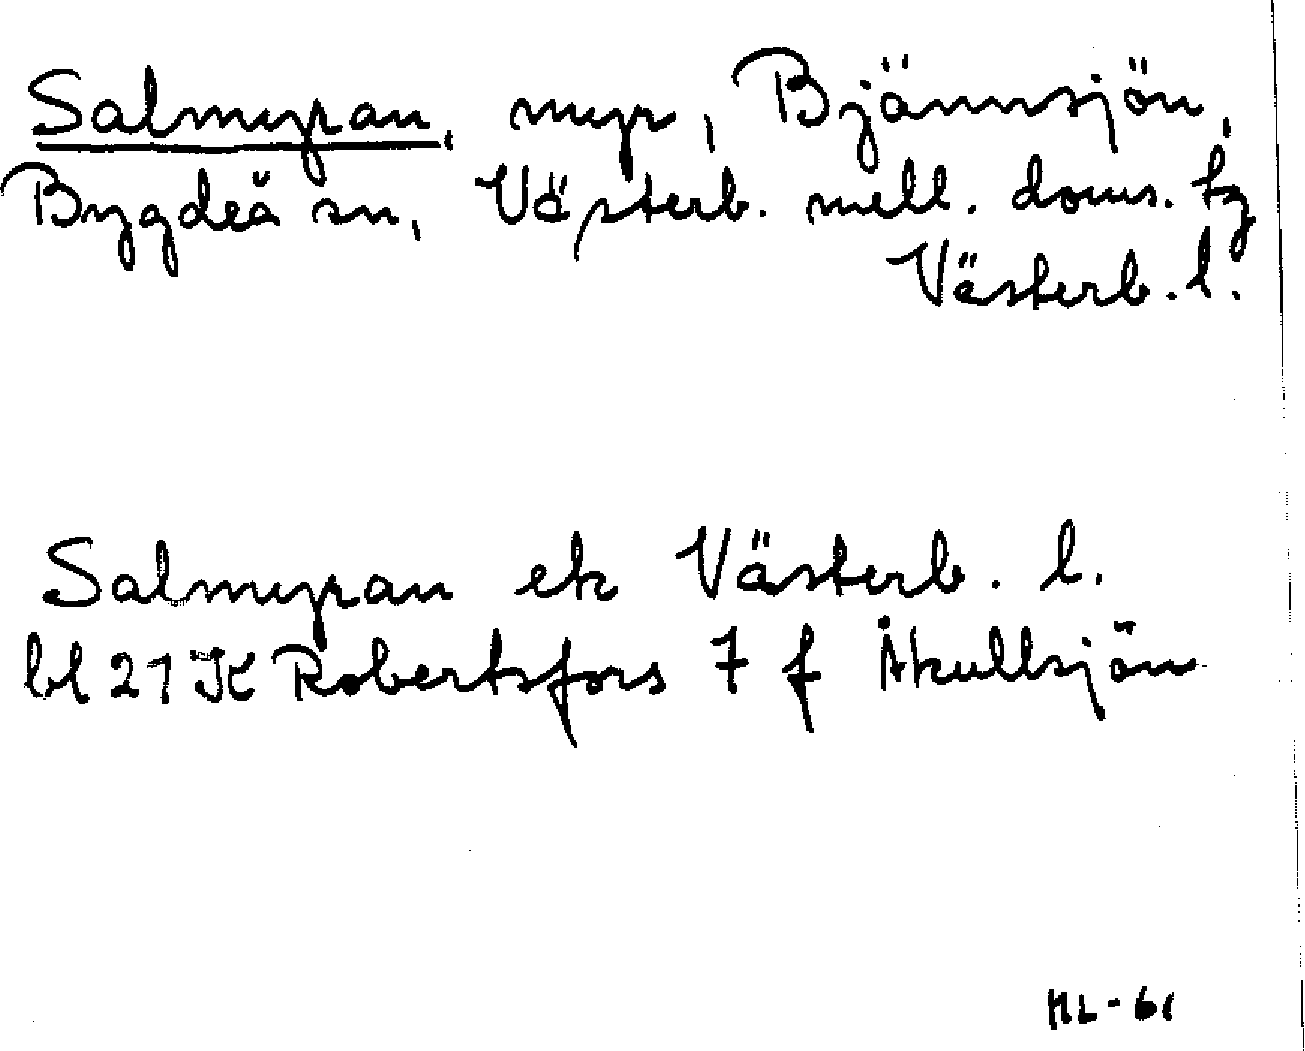 Salmyran, myr, Bjännsjön,
Bygdeå sn, Västerb. mell. doms. tg
Västerb. l.
Salmyran ek Västerb. l.
bl 21 K Robertsfors 7 f Åkullsjön
HL-61